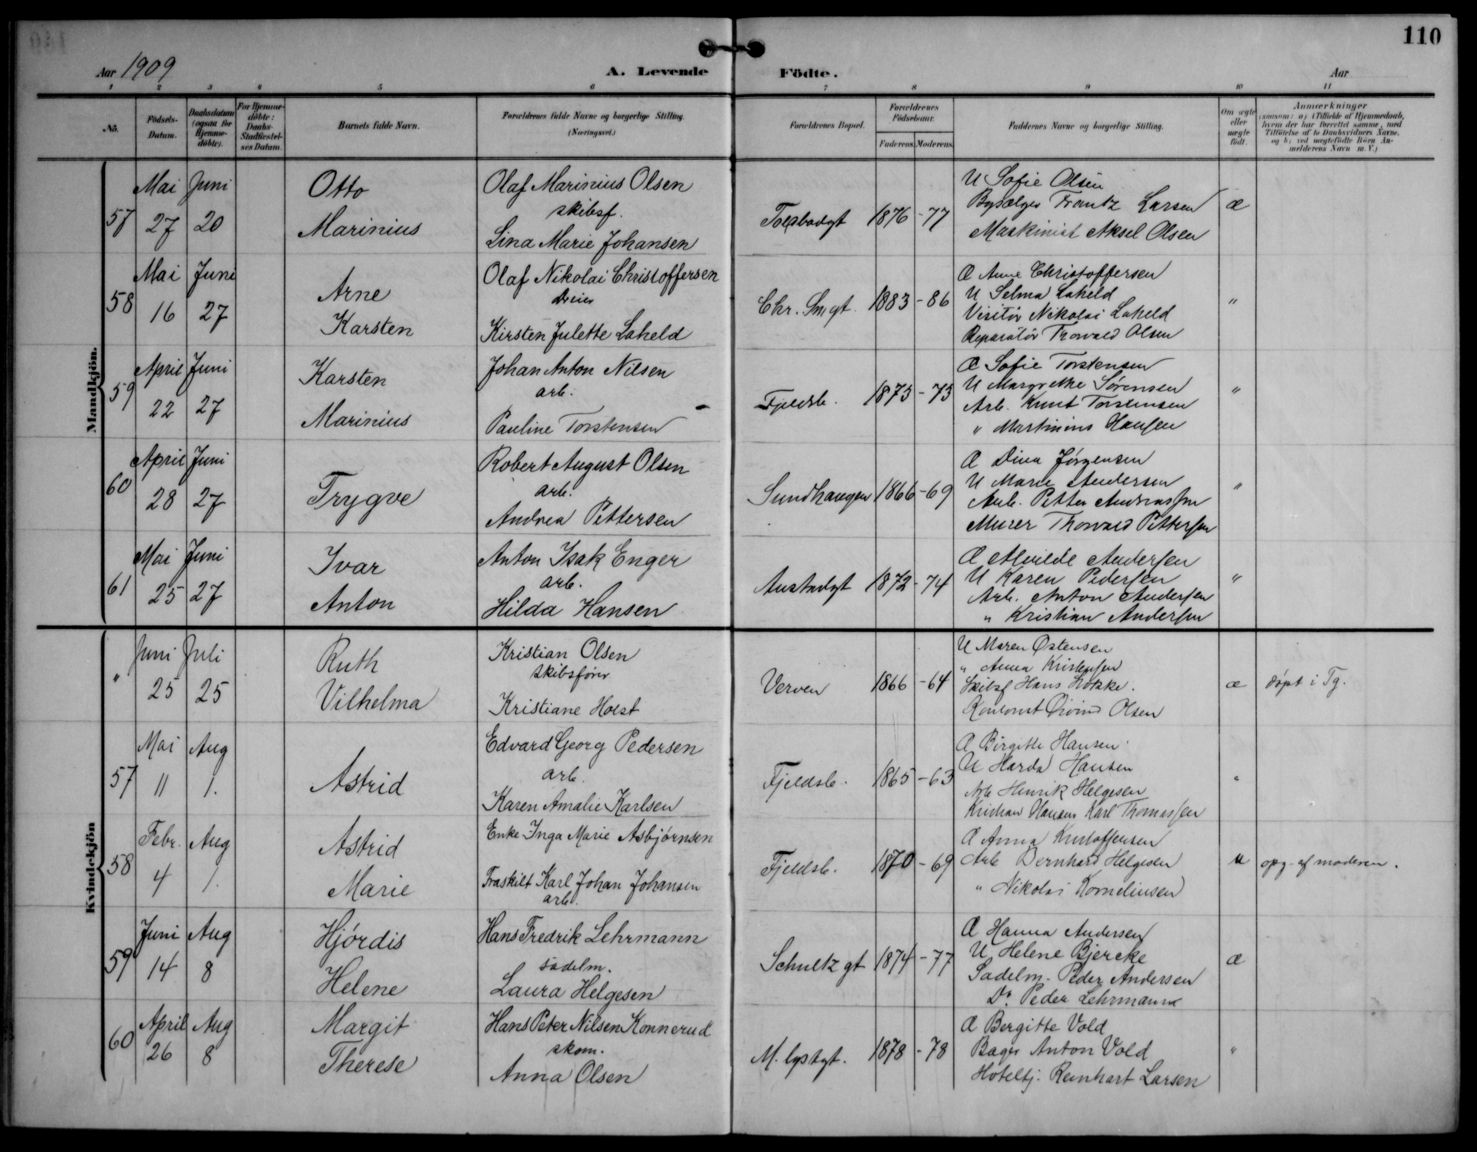 110
Aar 1909
A. Levende Födte.
Aar
1 2 3 4 5 6 7 8 9 10 11
No.
Födsels-Datum.
Daabsdatum (ogsaa for Hjemme-döbte).
For Hjemme-döbte: Daabs-Stadfæstel-ses Datum.
Barnets fulde Navn.
Forældrenes fulde Navne og borgerlige Stilling. (Næringsvei.)
Forældrenes Bopæl.
Forældrenes Födselsaar.
Faderens. Moderens.
Faddernes Navne og borgerlige Stilling.
Om ægte eller uægte födt.
Anmærkninger
(saasom: a) i Tilfælde af Hjemmedaab, hvem der har forrettet samme, med Tilföielse af to Daabsvidners Navne, og b) ved uægtefödte Börn An-melderens Navn m. V.)
Mandkjön.
57
Mai 27
Juni 20
Otto
Marinius
Olaf Marinius Olsen
skibsf.
Lina Marie Johansen
Tolbodgt
1876 - 77
U Sofie Olsen
Bysælger Frantz Larsen
Maskinist Aksel Olsen
æ
58
Mai 16
Juni 27
Arne
Karsten
Olaf Nikolai Christoffersen
dreier
Kirsten Julette Lakeld
Chr. Smgt.
1883 - 86
Æ Anne Christoffersen
U Selma Lakeld
Visitör Nikolai Lakeld
Reparatör Thorvald Olsen
"
59
April 22
Juni 27
Karsten
Marinius
Johan Anton Nilsen
arb.
Pauline Torstensen
Fjeldsb.
1873 - 73
Æ Sofie Torstensen
U Margrethe Sørensen
Arb. Knut Torstensen
" Martinius Hansen
"
60
April 28
Juni 27
Trygve
Robert August Olsen
arb.
Andrea Pettersen
Sundhaugen
1866 - 69
Æ Dina Jørgensen
U Marie Andersen
Arb. Petter Andreassen
Murer Thorvald Pettersen
"
61
Mai 25
Juni 27
Ivar
Anton
Anton Isak Enger
arb.
Hilda Hansen
Austadgt
1872 - 74
Æ Alvilde Andersen
U Karen Pedersen
Arb. Anton Andersen
" Kristian Andersen
"
Kvindekjön
"
Juni 25
Juli 25
Ruth
Vilhelma
Kristian Olsen
skibsfører
Kristiane Holst
Verven
1866 - 64
U Maren Østensen
" Anna Kristensen
Skibsf Hans
Kontorist Øivind Olsen
æ
døpt i Tg.
57
Mai 11
Aug 1.
Astrid
Edvard Georg Pedersen
arb.
Karen Amalie Karlsen
Fjeldsb.
1865 - 63
Æ Birgitte Hansen
U Harda Hansen
Arb Henrik Helgesen
Kristian Hansen Karl Thomassen
"
58
Febr. 4
Aug 1.
Astrid
Marie
Enke Inga Marie Asbjørnsen
Fraskilt Karl Johan Johansen
arb.
Fjeldsb.
1870 - 69
Æ Anna Kristoffersen
Arb Bernhard Helgesen
" Nikolai Korneliusen
u
opg. af moderen.
59
Juni 14
Aug 8
Hjördis
Helene
Hans Fredrik Lehrmann
sadelm.
Laura Helgesen
Schultz gt
1874 - 77
Æ Hanna Andersen
U Helene Bjercke
Sadelm. Peder Andersen
Do. Peder Lehrmann
æ
60
April 26
Aug 8
Margit
Therese
Hans Peter Nilsen Konnerud
skom.
Anna Olsen
M. lystgt.
1878 - 78
Æ Bergitte Vold
Bager Anton Vold
Hoteltj. Reinhart Larsen
"